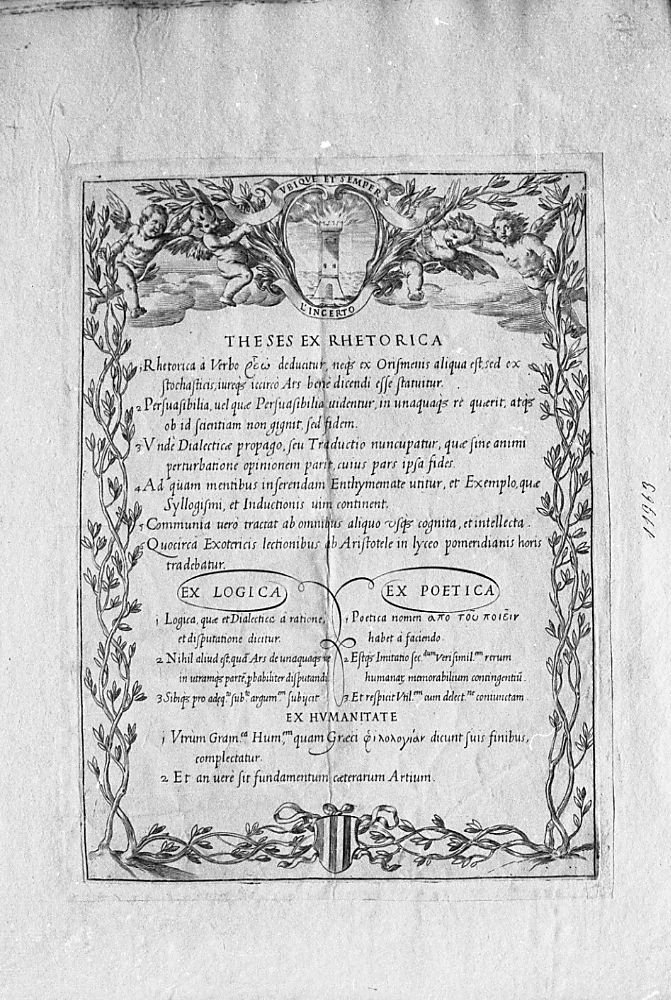 VBIQVE ET SEMPER
L'INCERTO
THESES EX RHETORICA
1 Rhetorica à Verbo ῥέω deducitur, neqȝ ex Orismenis aliqua est, sed ex
stochasticis, iureqȝ iccircò Ars benè dicendi esse statuitur.
2 Persuasibilia, uel quæ Persuasibilia uidentur, in unaquaqȝ rè quærit, atqȝ
ob id scientiam non gignit, sed fidem.
3 Vndè Dialecticæ propago, seu Traductio nuncupatur, quæ sine animi
perturbatione opinionem parit, cuius pars ipsa fides.
4 Ad quam mentibus inserendam Enthymemate utitur, et Exemplo, quæ
Syllogismi, et Inductionis uim continent.
5 Communia uerò tractat ab omnibus aliquo usqȝ cognita, et intellecta.
6 Quocircà Exotericis lectionibus ab Aristotele in lyceo pomeridianis horis
tradebatur.
EX LOGICA
1 Logica, quæ et Dialectica à ratione,
et disputatione dicitur.
2 Nihil aliud est, quā Ars de unaquaqȝ re
in utramqȝ partē, pbabiliter disputandi
3 Sibiqȝ pro adeq.to sub.to argum.m subijcit
EX POETICA
1 Poetica nomen απο τοῦ ποιεῖν
habet à faciendo.
2 Estqȝ Imitatio sec.dum Verisimil.em rerum
humanar, memorabilium contingentiū
3 Et respicit Vtil.em cum delect.ne coniunctam
EX HVMANITATE
1 Vtrum Gram.ca Hum.em quam Græci φιλολογίαν dicunt suis finibus,
complectatur.
2 Et an uerè sit fundamentum cæterarum Artium.